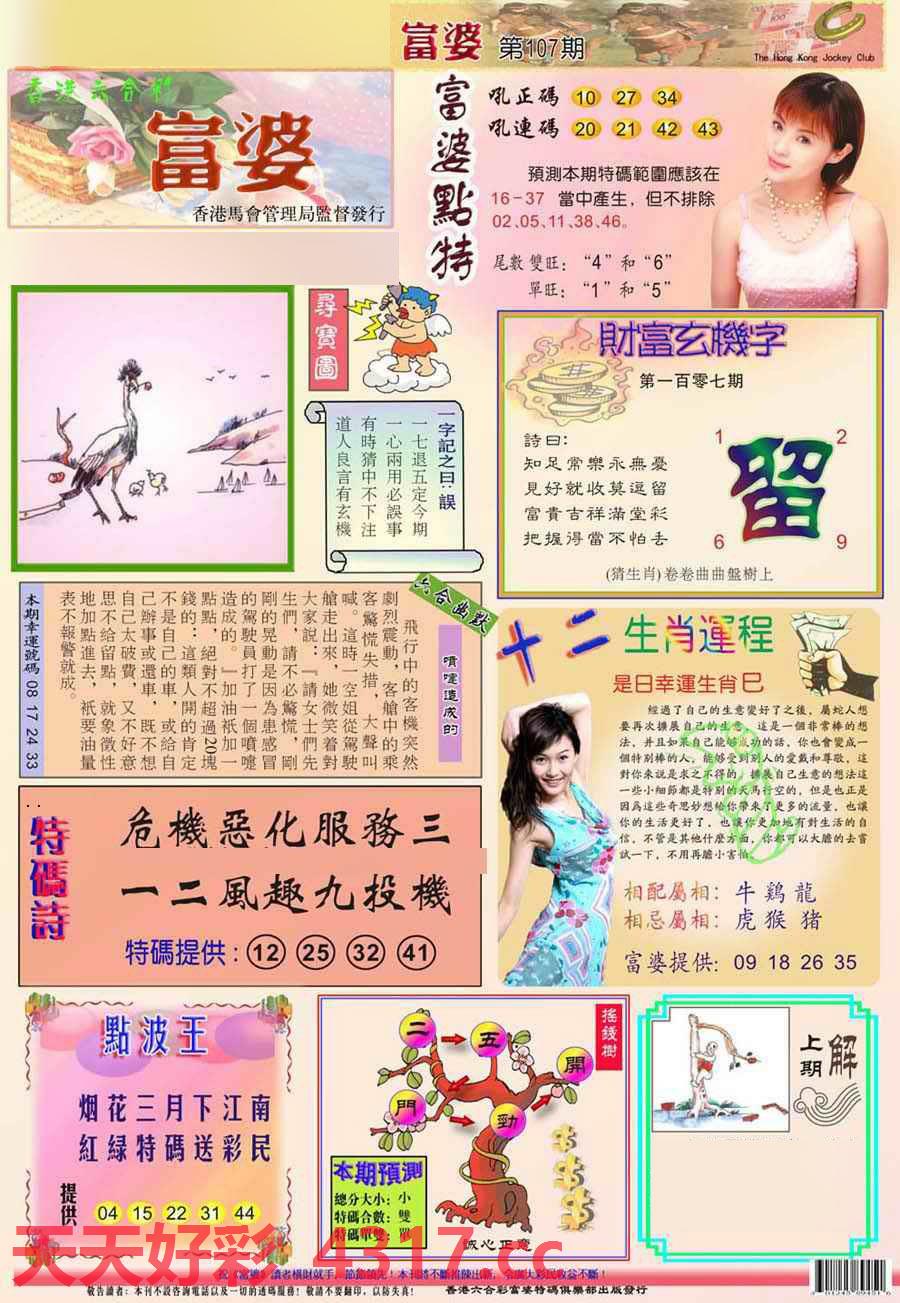 富婆 第107期
The Hong Kong Jockey Club
香港六合彩
富婆
香港馬會管理局監督發行
富婆點特
吼正碼 10 27 34
吼連碼 20 21 42 43
預測本期特碼範圍應該在
16-37 當中產生，但不排除
02、05、11、38、46。
尾數雙旺：“4”和“6”
單旺：“1”和“5”
尋寶圖
一字記之曰：誤
一七退五定今期
一心兩用必誤事
有時猜中不下注
道人良言有玄機
財富玄機字
第一百零七期
詩曰：
知足常樂永無憂
見好就收莫逗留
富貴吉祥滿堂彩
把握得當不怕丟
1 2
留
6 9
(猜生肖)卷卷曲曲盤樹上
六合幽默
噴嚏造成的
飛行中的客機突然
劇烈震動，客艙中的乘
客驚慌失措，大聲叫
喊。這時一空姐從駕駛
艙走出來，她微笑着對
大家說：『請女士們先
生們，請不必驚慌，剛
剛的晃動是因為患感冒
的駕駛員打了一個噴嚏
造成的。』加油祇加一
點點，絕對不超過20塊
錢的：這類人開的肯定
不是自己的車，或給自
己辦事或還車，既不想
自己太破費，又不好意
思不給留點，就象徵性
地加點進去，祇要油量
表不報警就成。
本期幸運號碼 08 17 24 33
十二生肖運程
是日幸運生肖巳
經過了自己的生意變好了之後，屬蛇人想
要再次擴展自己的生意，這是一個非常棒的想
法，并且如果自己能够成功的話，你也會變成一
個特別棒的人，能够受到別人的愛戴和尊敬，這
對你來説是求之不得的，擴展自己生意的想法這
一些小細節都是特別的天馬行空的，但是也正是
因爲這些奇思妙想給你帶來了更多的流量，也讓
你的生活更好了，也讓你更加地有對生活的自
信，不管是其他什麽方面，你都可以大膽的去嘗
試一下，不用再膽小害怕。
相配屬相：牛 鷄 龍
相忌屬相：虎 猴 猪
富婆提供：09 18 26 35
特碼詩
危機惡化服務三
一二風趣九投機
特碼提供：12 25 32 41
點波王
烟花三月下江南
紅緑特碼送彩民
提供 04 15 22 31 44
搖錢樹
二 五 開
門 勁
本期預測
總分大小：小
特碼合數：雙
特碼單雙：單
誠心正意
上期解
天天好彩 4317.cc
祝《富婆》讀者橫財就手，節節領先！本刊將不斷推陳出新，令廣大彩民收益不斷！
敬告讀者：本刊不設咨詢電話以及一切的透碼服務！敬請不要翻印，以防失真！
香港六合彩富婆特碼俱樂部出版發行